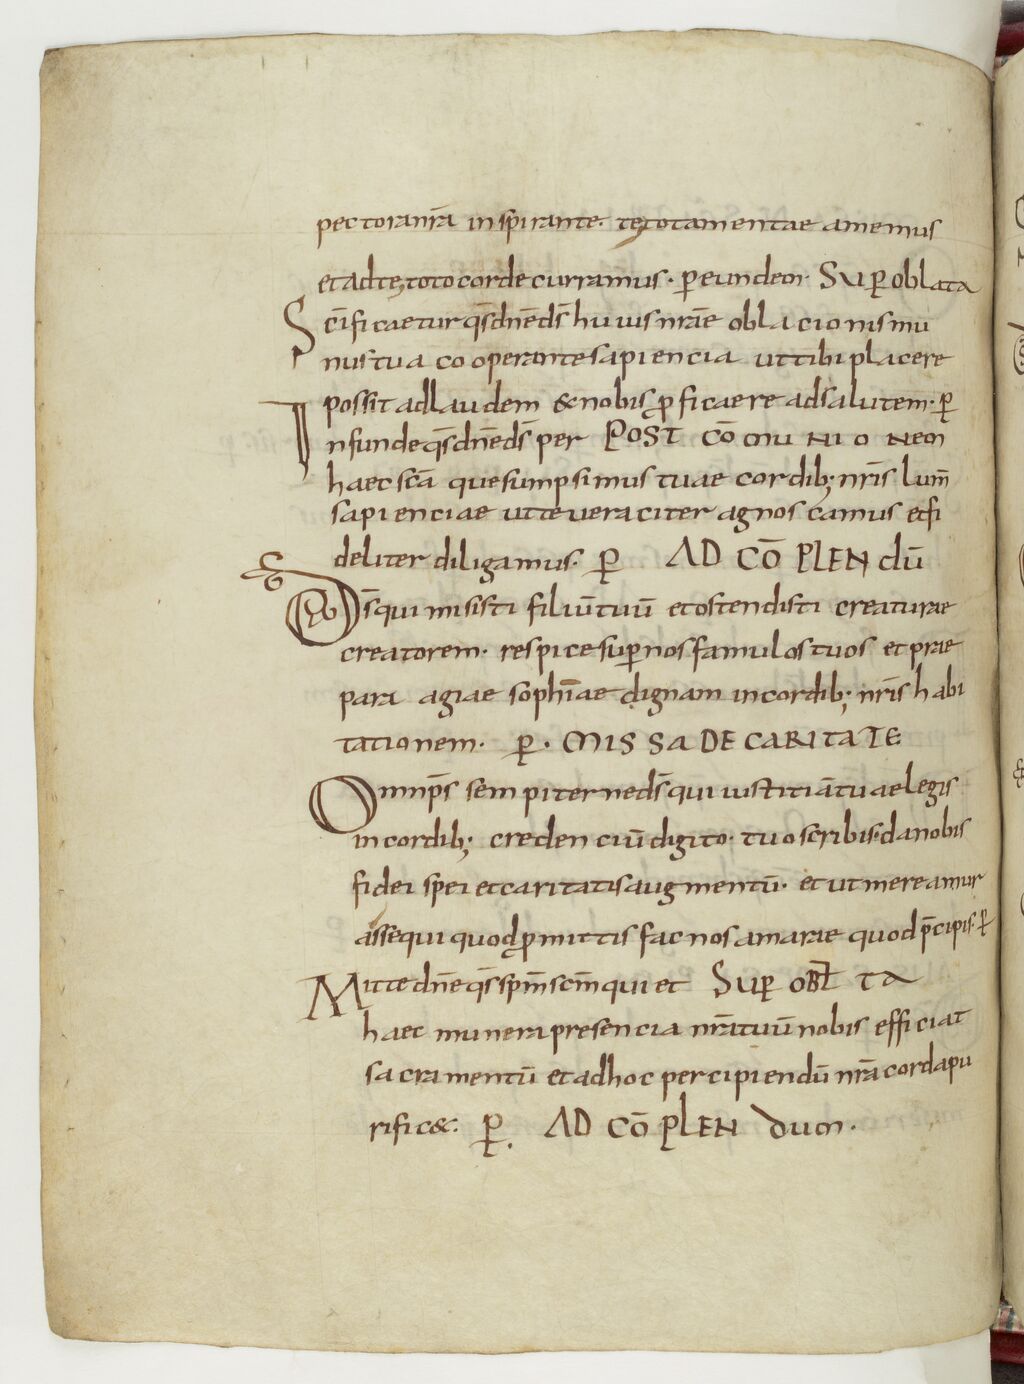 pectoranr̄a inspirante. te totamentae amemus
et adte, toto corde curramus. p̲ eundem. Sup̲ oblata
Sc̄ificaetur qs̄ dn̄e ds̄ huius nrāe oblacionis mu
nus tua cooperante sapiencia ut tibi placere
possit ad laudem & nobis ꝓficaere ad salutem. p̲
Infunde qs̄ dn̄e ds̄ per POST CŌMUNIONEM
haec scā que sumpsimus tuae cordib; nr̄is lum̄
sapienciae ut te veraciter agnoscamus et fi
deliter diligamus. p̲ AD CŌPLENDŪ
Ds̄ qui misisti filiū tuū et ostendisti creaturae
creatorem. respice sup̲ nos famulos tuos et prae
para agiae sophīae dignam in cordib; nr̄is habi
tationem. p̲. MISSA DE CARITATE
Omnip̄s sempiterne ds̄ qui iustitiā tuae legis
in cordib; credenciū digito. tuo scribis. da nobis
fidei spei et caritatis augmentū. et ut mereamur
assequi quod ꝓmittis fac nos amarae quod p̄cipis. p̲
Mitte dn̄e qs̄ sp̄m sc̄m qui et Sup̲ OBL̄TA
haec munera presencia nrā tuū nobis efficiat
sacramentū et ad hoc percipiendū nrā corda pu
rific&. p̲. AD CŌPLENDUM.